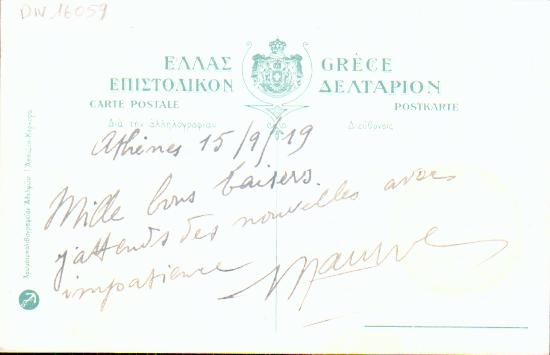 DIV. 16059
ΕΛΛΑΣ GRÈCE
ΕΠΙΣΤΟΛΙΚΟΝ ΔΕΛΤΑΡΙΟΝ
CARTE POSTALE POSTKARTE
Διὰ τὴν ἀλληλογραφίαν Διεύθυνσις
Athènes 15/9/19
Mille bons baisers.
j'attends des nouvelles avec
impatience